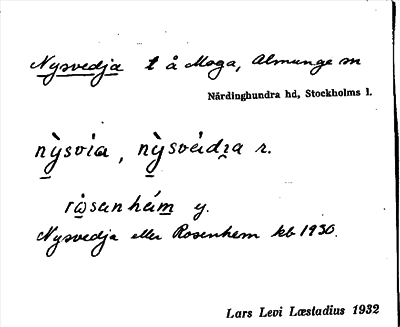 Nysvedja t å Moga, Almunge sn
Närdinghundra hd, Stockholms l.
nỳsvi̇́a, nỳsvèidɹ̯a r.
rò̤senhéim̲ y.
Nysvedja eller Rosenhem kb 1930.
Lars Levi Læstadius 1932